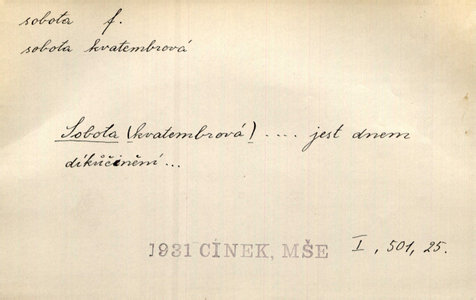 sobota f.
sobota kvatembrová
Sobota (kvatembrová) .... jest dnem
díkůčinění ...
1931 CÍNEK, MŠE I, 501, 25.